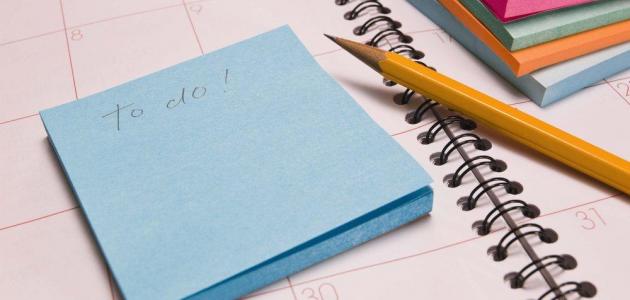 8
9
To do!
31
30